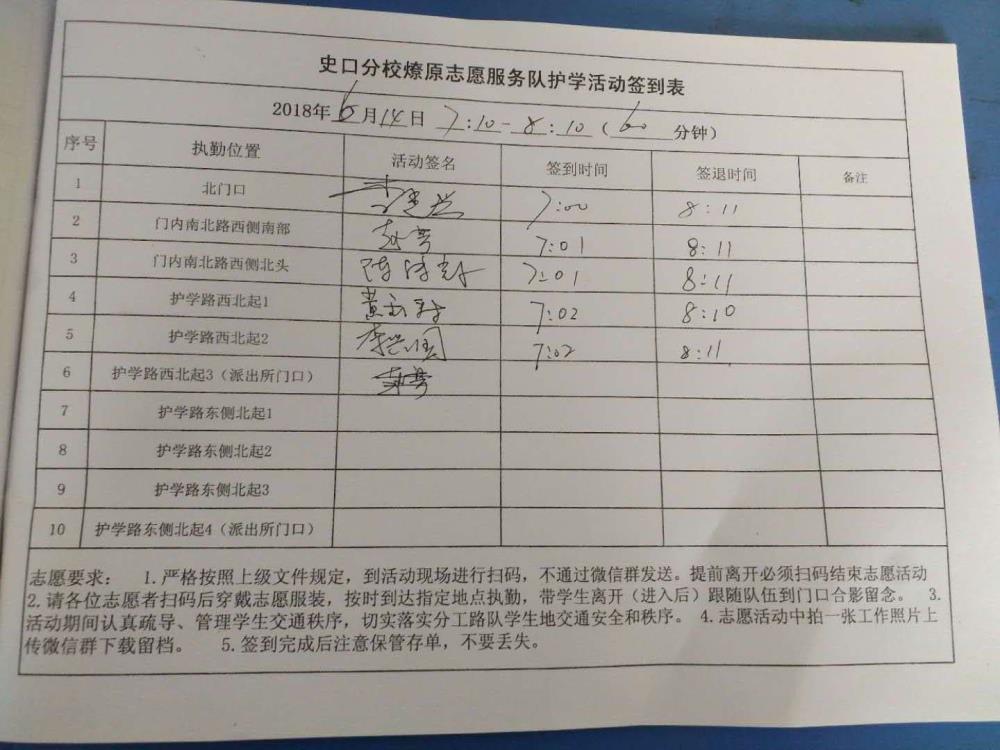 史口分校燎原志愿服务队护学活动签到表
2018年6月14日 7:10-8:10(60 分钟)
序号 执勤位置 活动签名 签到时间 签退时间 备注
1 北门口 7:00 8:11
2 门内南北路西侧南部 7:01 8:11
3 门内南北路西侧北头 7:01 8:11
4 护学路西北起1 7:02 8:10
5 护学路西北起2 7:02 8:11
6 护学路西北起3(派出所门口)
7 护学路东侧北起1
8 护学路东侧北起2
9 护学路东侧北起3
10 护学路东侧北起4(派出所门口)
志愿要求: 1.严格按照上级文件规定,到活动现场进行扫码,不通过微信群发送。提前离开必须扫码结束志愿活动
2.请各位志愿者扫码后穿戴志愿服装,按时到达指定地点执勤,带学生离开(进入后)跟随队伍到门口合影留念。 3.
活动期间认真疏导、管理学生交通秩序,切实落实分工路队学生地交通安全和秩序。 4.志愿活动中拍一张工作照片上
传微信群下载留档。 5.签到完成后注意保管存单,不要丢失。